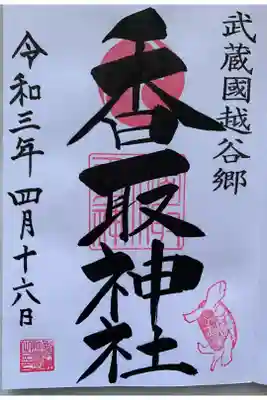 武蔵國越谷郷
香取神社
令和三年四月十六日